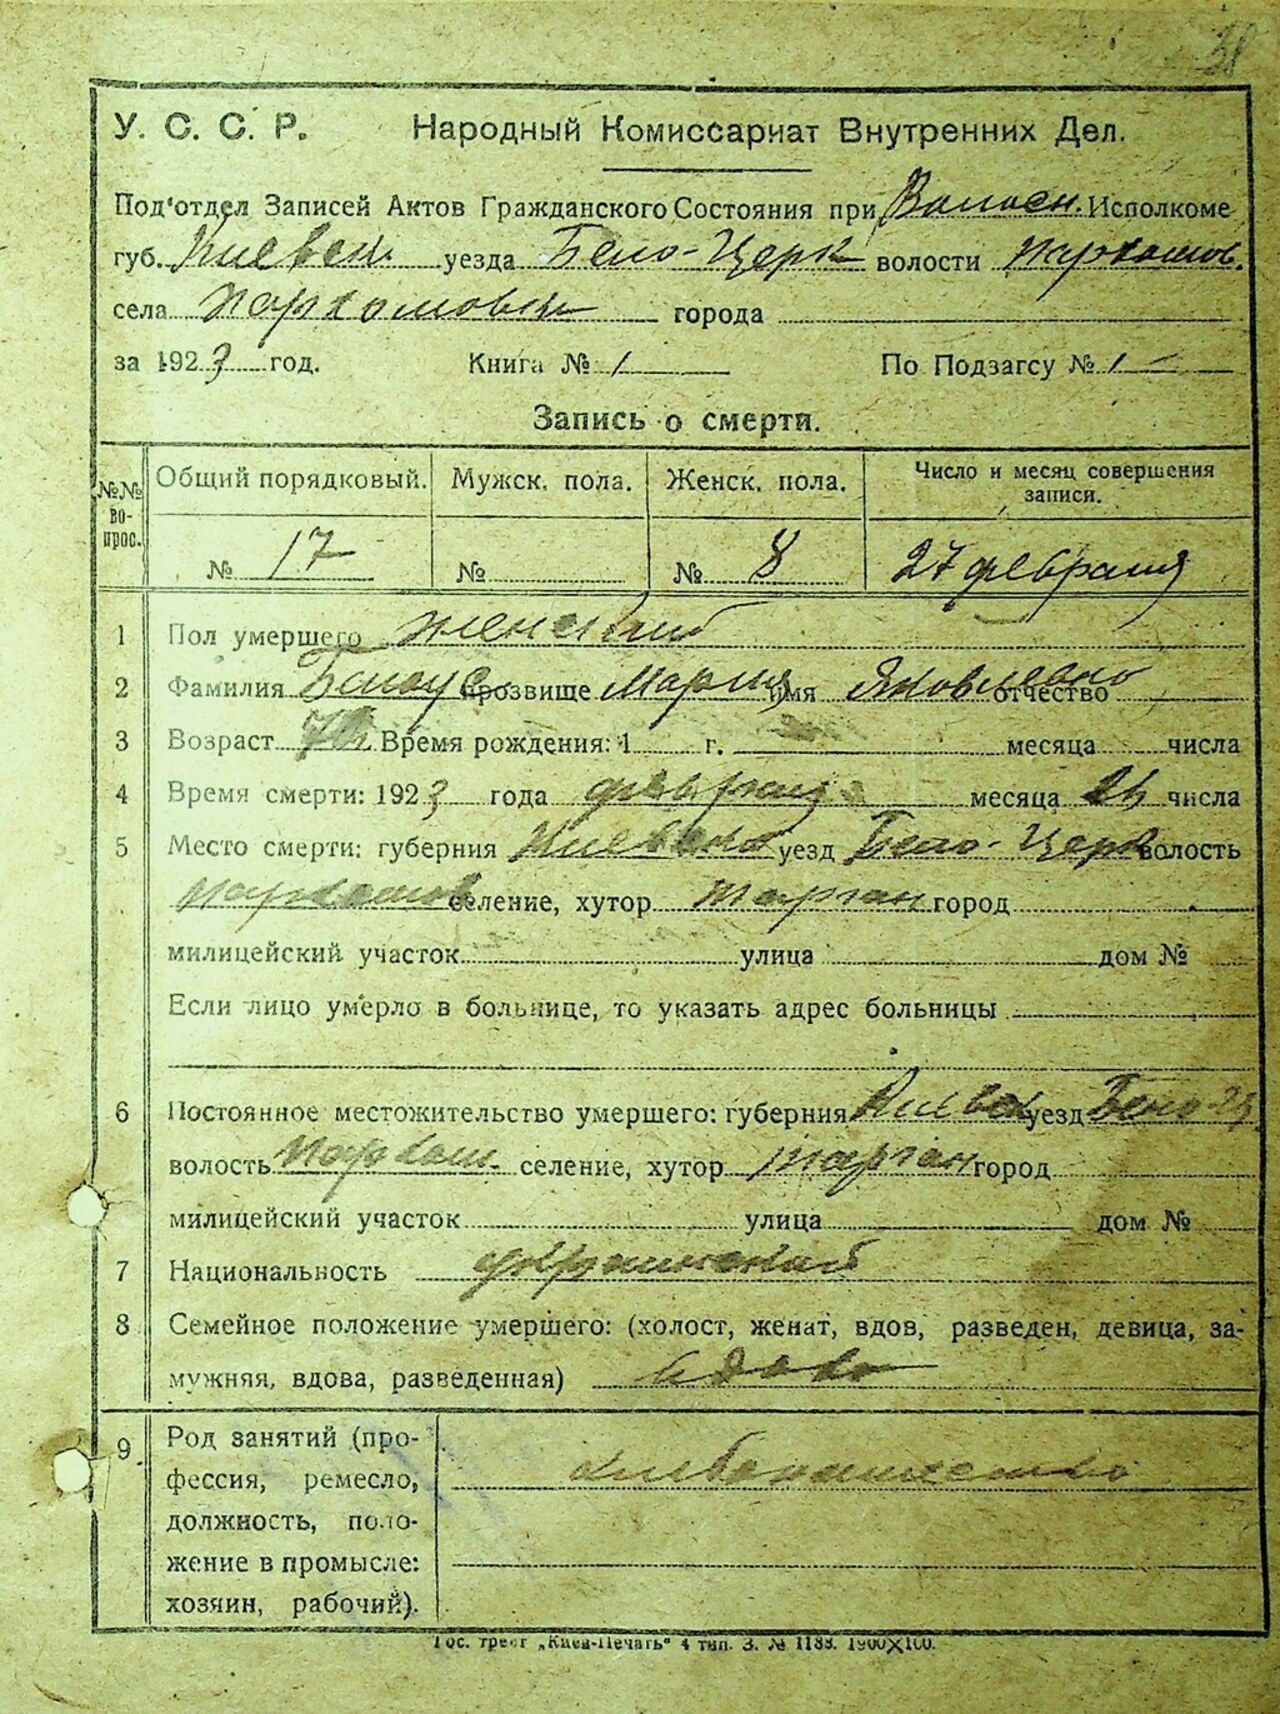 38
У. С. С. Р. Народный Комиссариат Внутренних Дел.
Под'отдел Записей Актов Гражданского Состояния при Волосн. Исполкоме
губ. Киевск. уезда Бело-Церк волости Пархомов.
села Пархомовки города
за 1923 год. Книга № 1 По Подзагсу № 1
Запись о смерти.
№№ вопрос. Общий порядковый. Мужск. пола. Женск. пола. Число и месяц совершения записи.
№ 17 № № 8 27 февраля
1 Пол умершего женский
2 Фамилия Билоус прозвище Мария имя Яковлевна отчество
3 Возраст Время рождения: 1 г. месяца числа
4 Время смерти: 1923 года февраля месяца 26 числа
5 Место смерти: губерния уезд Бело-Церк волость
Пархомов селение, хутор Тарган город
милицейский участок улица дом №
Если лицо умерло в больнице, то указать адрес больницы
6 Постоянное местожительство умершего: губерния Киевск уезд Бело-Ц
волость Пархом. селение, хутор Тарган город
милицейский участок улица дом №
7 Национальность
8 Семейное положение умершего: (холост, женат, вдов, разведен, девица, за-
мужняя, вдова, разведенная) вдова
9 Род занятий (про-
фессия, ремесло, хлебопашество
должность, поло-
жение в промысле:
хозяин, рабочий).
Гос. трест „Киев-Печать" 4 тип. З. № 1188. 1900X100.